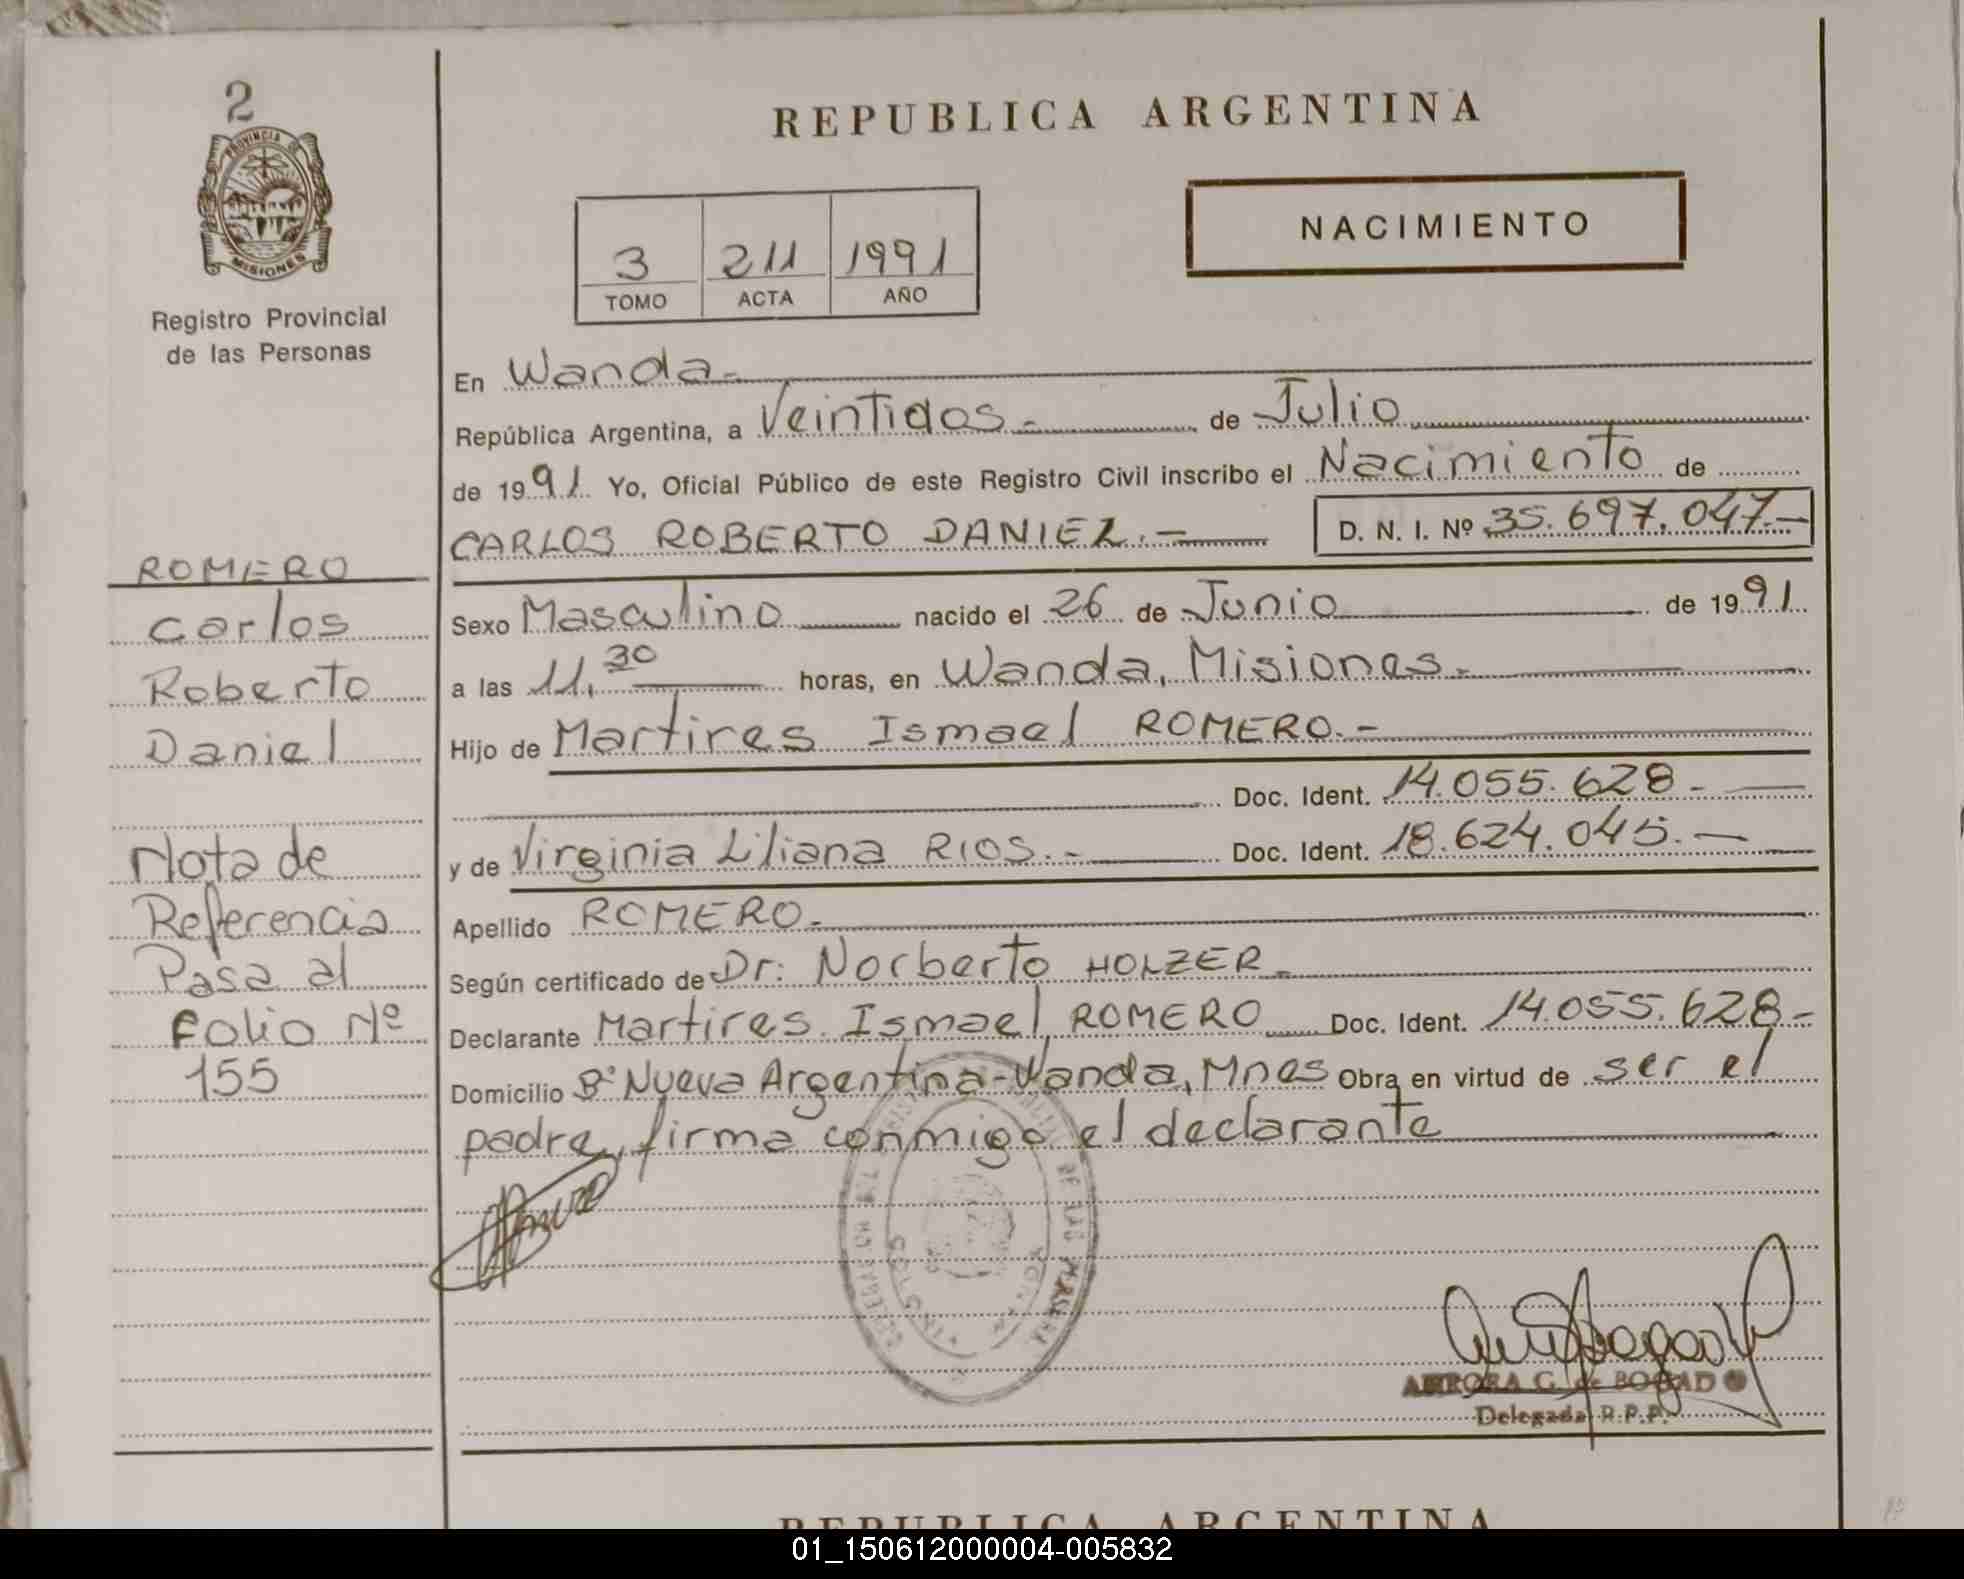 2
PROVINCIA DE
MISIONES
Registro Provincial
de las Personas
REPUBLICA ARGENTINA
NACIMIENTO
3 211 1991
TOMO ACTA AÑO
En Wanda.-
República Argentina, a Veintidos.- de Julio
de 1991. Yo, Oficial Público de este Registro Civil inscribo el Nacimiento de
CARLOS ROBERTO DANIEL.- D. N. I. Nº 35.697.047.-
Sexo Masculino nacido el 26 de Junio de 1991.
a las 11,30 horas, en Wanda, Misiones.-
Hijo de Martires Ismael ROMERO.-
Doc. Ident. 14.055.628.-
y de Virginia Liliana RIOS.- Doc. Ident. 18.624.045.-
Apellido ROMERO.-
Según certificado de Dr: Norberto HOLZER.
Declarante Martires Ismael ROMERO Doc. Ident. 14.055.628.-
Domicilio Bº Nueva Argentina-Wanda, Mnes Obra en virtud de ser el
padre, firma conmigo el declarante
ROMERO
Carlos
Roberto
Daniel
Nota de
Referencia
Pasa al
Folio Nº
155
DE LAS PERSONAS
AURORA G. de BOGADO
Delegada R.P.P.
REPUBLICA ARGENTINA
01_150612000004-005832